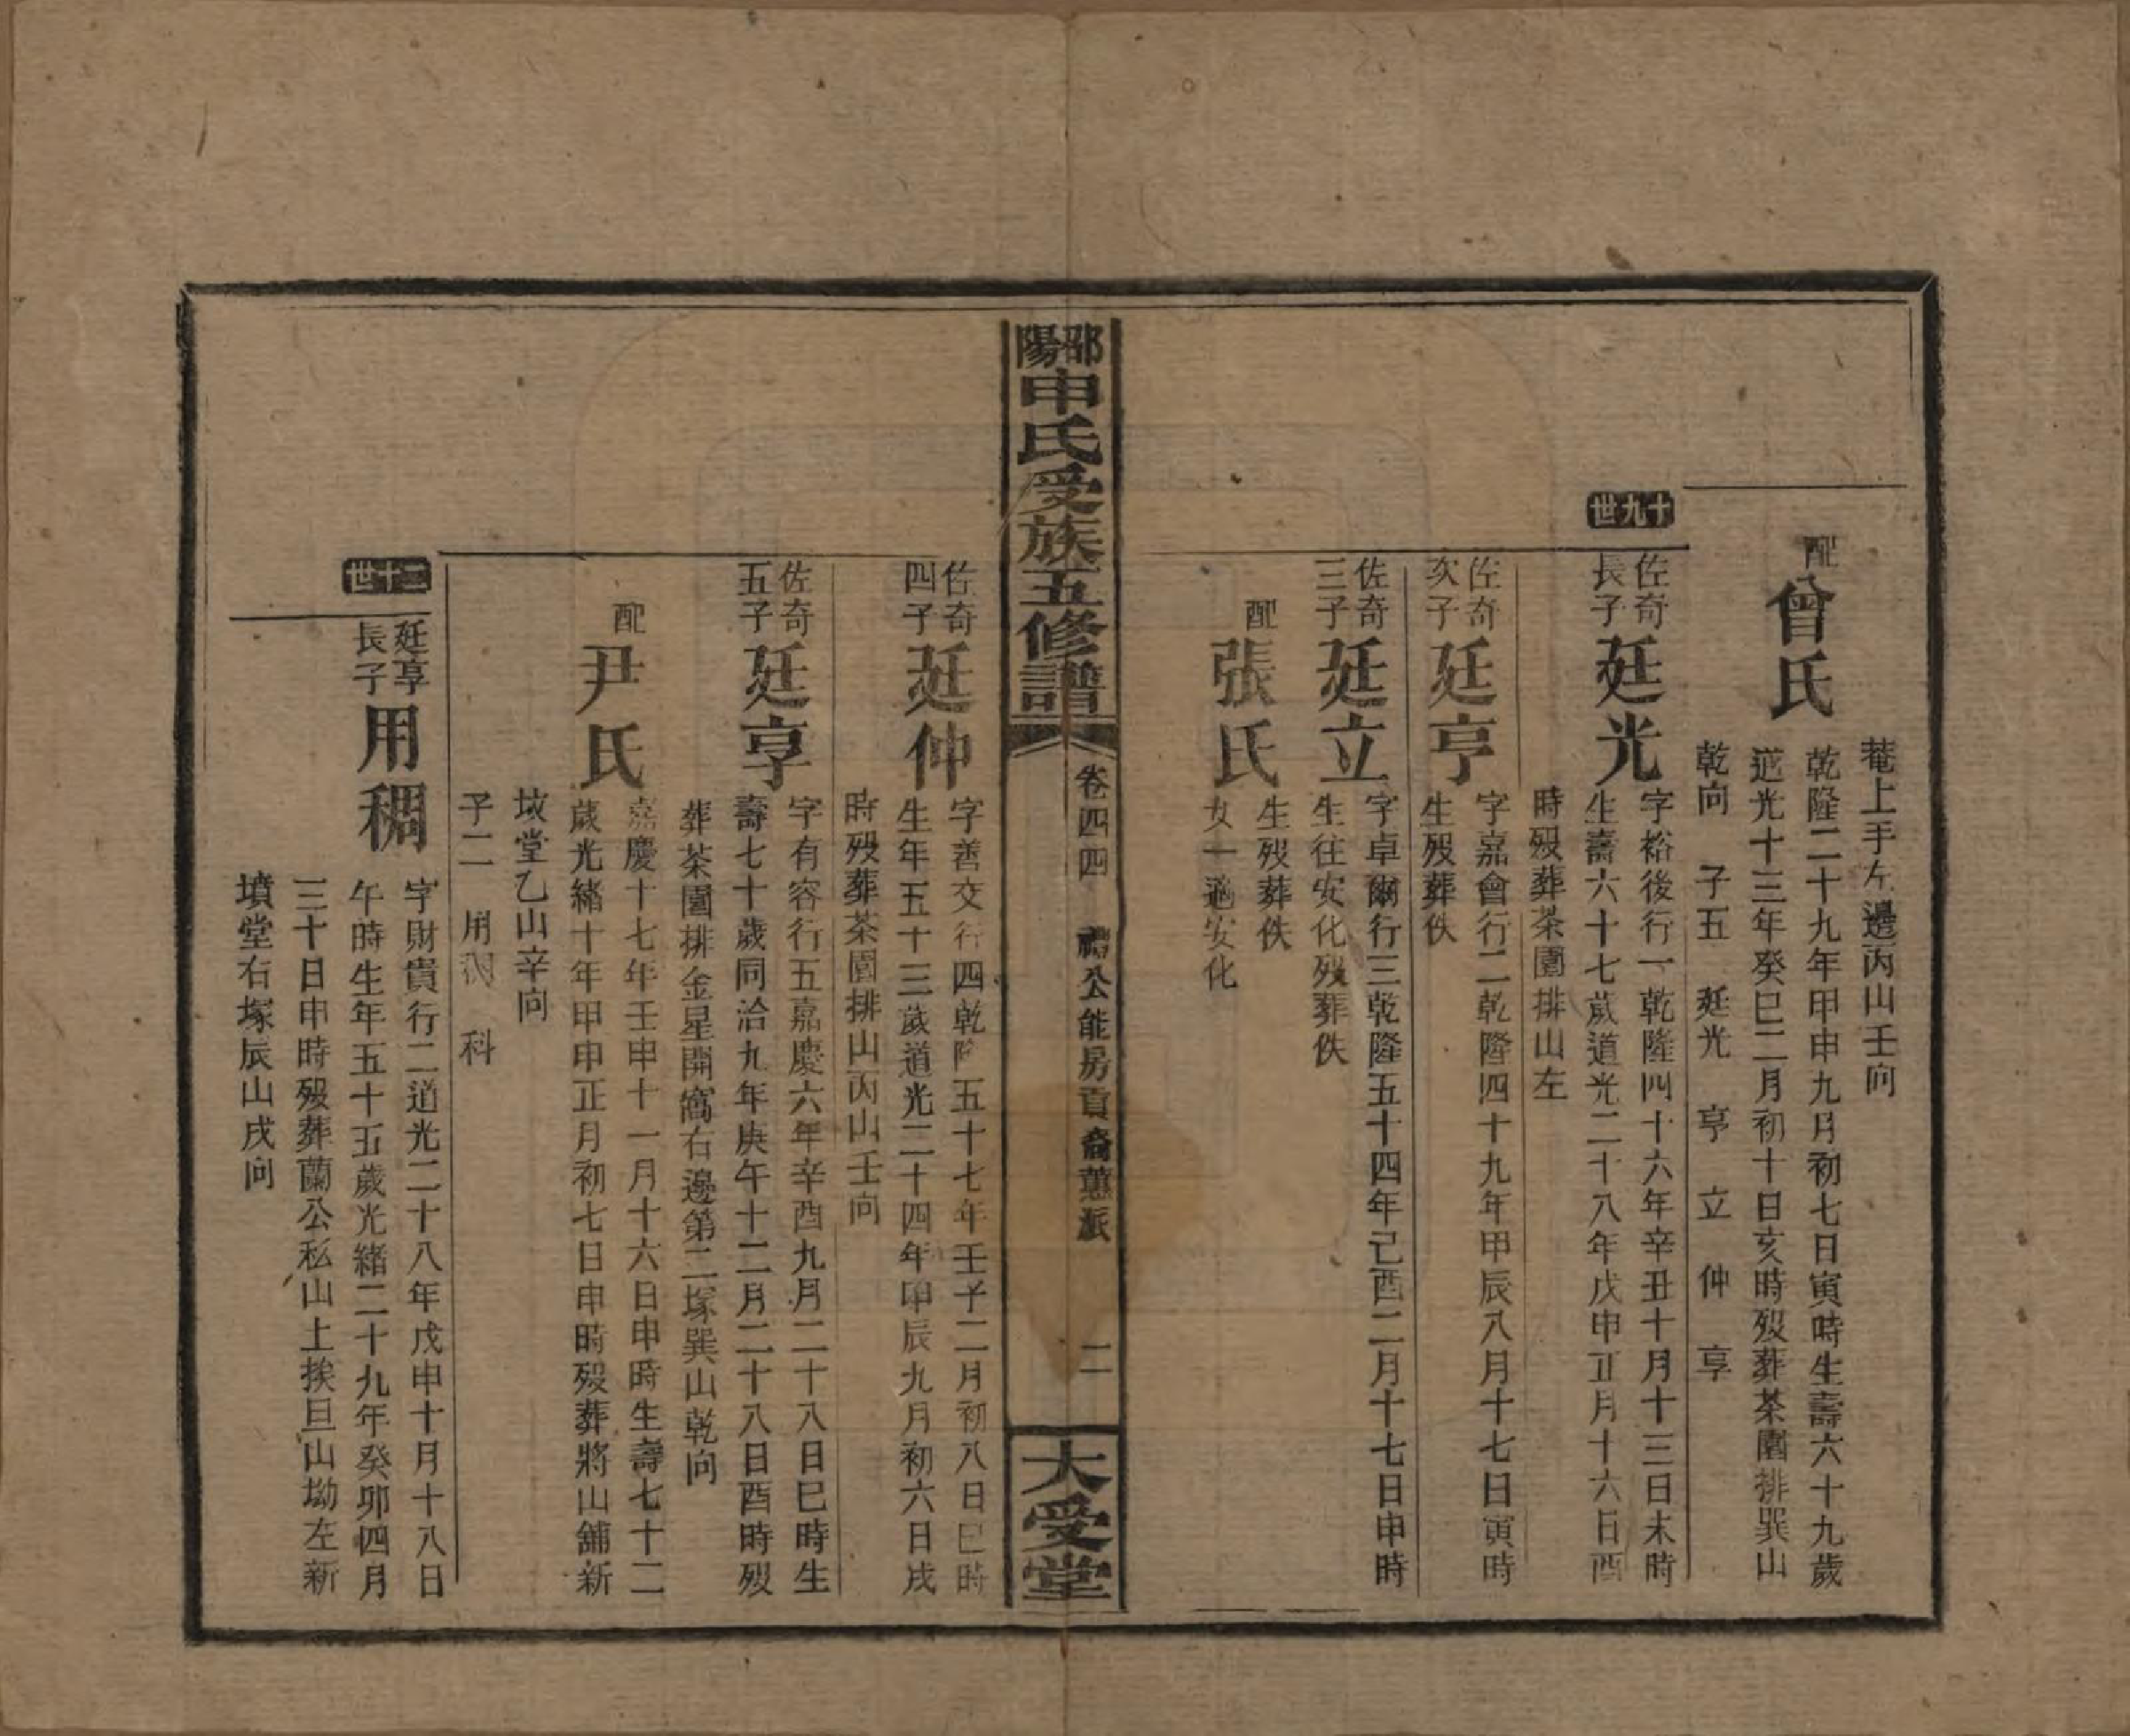 菴上手左邊丙山壬向
配曾氏
乾隆二十九年甲申九月初七日寅時生壽六十九歲
道光十三年癸巳二月初十日亥時歿葬茶園排巽山
乾向 子五 廷光 亨 立 仲 享
十九世
佐奇長子廷光
字裕後行一乾隆四十六年辛丑十月十三日未時
生壽六十七歲道光二十八年戊申正月十六日酉
時歿葬茶園排山左
佐奇次子廷亨
字嘉會行二乾隆四十九年甲辰八月十七日寅時
生歿葬佚
佐奇三子廷立
字卓爾行三乾隆五十四年己酉二月十七日申時
生往安化歿葬佚
配張氏
生歿葬佚
女一適安化
邵陽申氏受族五修譜
卷四四
公能房貢裔蕙派
二
大受堂
佐奇四子廷仲
字善交行四乾隆五十七年壬子二月初八日巳時
生年五十三歲道光二十四年甲辰九月初六日戌
時歿葬茶園排山丙山壬向
佐奇五子廷享
字有容行五嘉慶六年辛酉九月二十八日巳時生
壽七十歲同治九年庚午十二月二十八日酉時歿
葬茶園排金星開窩右邊第二塚巽山乾向
配尹氏
嘉慶十七年壬申十一月十六日申時生壽七十二
歲光緒十年甲申正月初七日申時歿葬將山舖新
坟堂乙山辛向
子二 用稠 科
二十世
廷享長子用稠
字財貴行二道光二十八年戊申十月十八日
午時生年五十五歲光緒二十九年癸卯四月
三十日申時歿葬蘭公私山上挨旦山坳左新
墳堂右塚辰山戌向